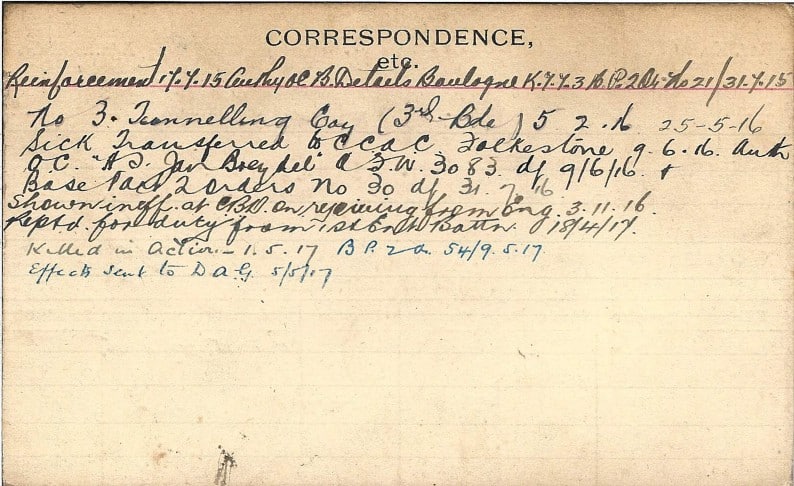 CORRESPONDENCE,
etc.
Reinforcement 17.7.15 Authy O.C. B. Details Boulogne K.7.7.3 B.P. 2 O. No 21/31.7.15
No 3. Tunnelling Coy (3rd Bde) 5.2.16 25-5-16
Sick Transferred to C.C.A.C. Folkestone 9.6.16. Auth
O.C. "H.S. Jan Breydel" A.F.W. 3083. d/ 9/6/16. +
Base Part 2 Orders No 30 d/ 31.7.16
Shown ineff. at C.B.D. on rejoining from Eng. 3.11.16.
Reptd. for duty from 1st Ent Battn. 18/4/17.
Killed in Action - 1.5.17 B.P. 2 O. 54/9.5.17
Effects sent to D.A.G. 5/5/17